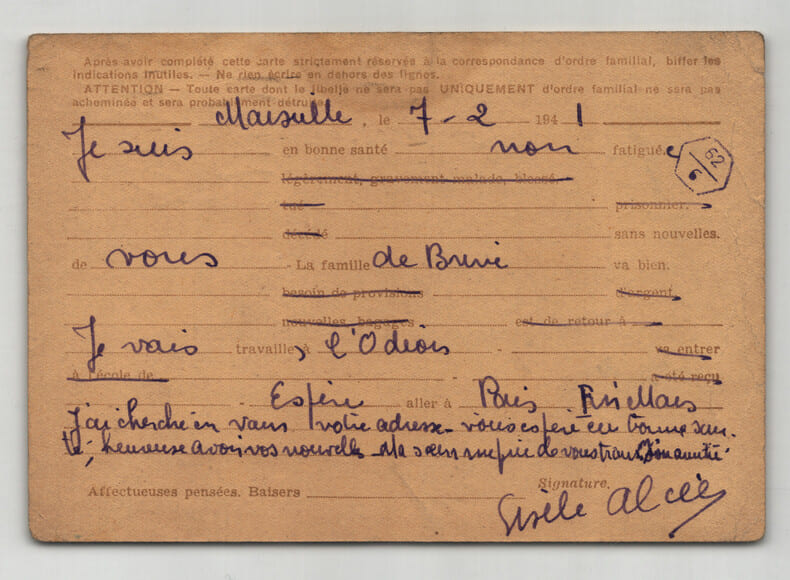 Après avoir complété cette carte strictement réservée à la correspondance d'ordre familial, biffer les
indications inutiles. — Ne rien écrire en dehors des lignes.
ATTENTION — Toute carte dont le libellé ne sera pas UNIQUEMENT d'ordre familial ne sera pas
acheminée et sera probablement détruite.
Marseille, le 7-2 1941
Je suis en bonne santé non fatiguée
62
6
légèrement, gravement malade, blessé.
tué prisonnier.
décédé sans nouvelles.
de vous La famille de Brive va bien.
besoin de provisions d'argent.
nouvelles, bagages est de retour à
Je vais travailler à l'Odéois va entrer
à l'école de a été reçu
Espère aller à Paris Fin Mars
J'ai cherché en vain votre adresse - vous espère en bonne san-
té, heureuse avoir vos nouvelles - Ma sœur me prie de vous trans. son amitié
Affectueuses pensées. Baisers Signature.
Gisèle